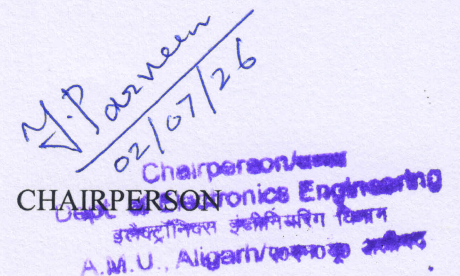 Y.Parveen
02/07/26
Chairperson/अध्यक्ष
CHAIRPERSON
Dept. of Electronics Engineering
इलैक्ट्रॉनिक्स इंजीनियरिंग विभाग
A.M.U., Aligarh/ए०एम०यू० अलीगढ़